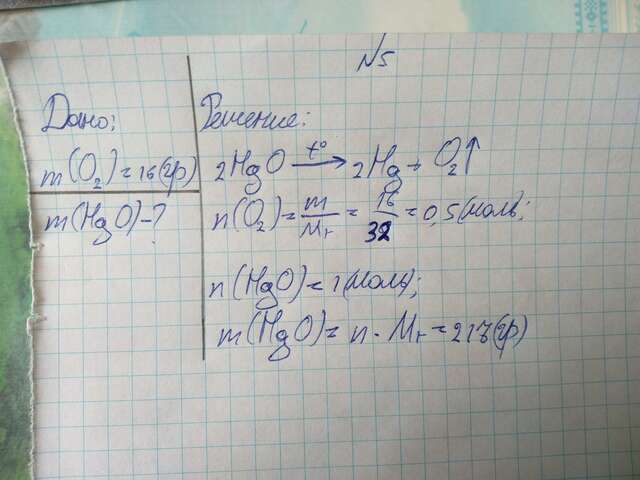 №5
Дано:
m(O₂)=16(гр)
m(HgO)-?
Решение:
2HgO t°→ 2Hg + O₂↑
n(O₂)=m/Mr=16/32=0,5(моль);
n(HgO)=1(моль);
m(HgO)=n·Mr=217(гр)